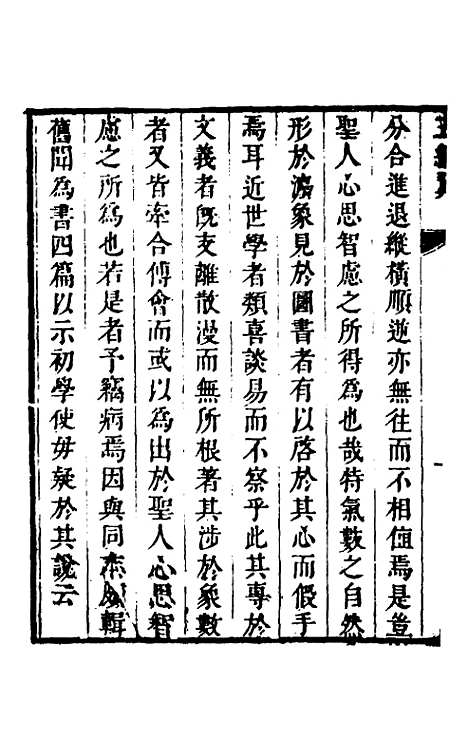 分合進退縱橫順逆亦無往而不相值焉是豈
聖人心思智慮之所得為也哉特氣數之自然
形於法象見於圖書者有以啓於其心而假手
焉耳近世學者類喜談易而不察乎此其專於
文義者旣支離散漫而無所根著其涉於象數
者又皆牽合傅會而或以為出於聖人心思智
慮之所為也若是者予竊病焉因與同輯
舊聞為書四篇以示初學使毋疑於其說云